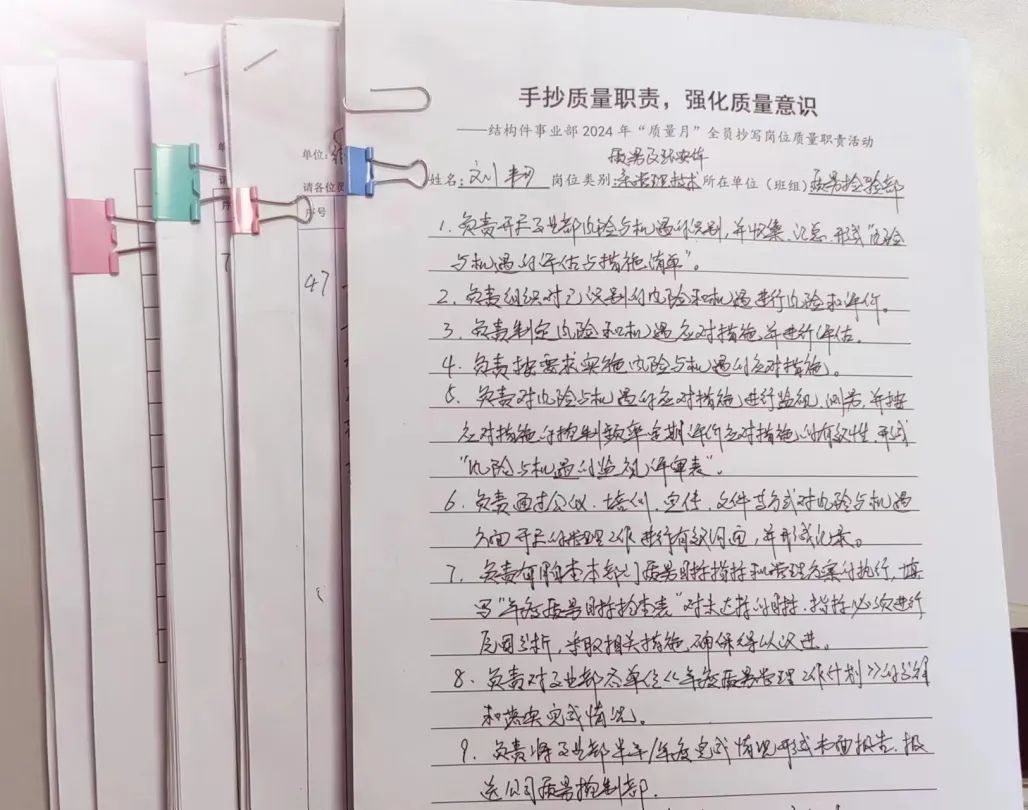 手抄质量职责，强化质量意识
——结构件事业部 2024 年“质量月”全员抄写岗位质量职责活动
质量及环安体
姓名：刘 岗位类别：系管理技术 所在单位（班组）质量检验部
1. 负责开展事业部风险与机遇的识别，并收集、汇总、形成“风险
与机遇的评估与措施清单”。
2. 负责组织对已识别的风险和机遇进行风险和评价。
3. 负责制定风险和机遇应对措施，并进行评估。
4. 负责按要求实施风险与机遇的应对措施。
5. 负责对风险与机遇的应对措施进行监视、测量，并按
应对措施的控制频率定期评价应对措施的有效性，形成
“风险与机遇的监视评审表”。
6. 负责通过会议、培训、宣传、文件等方式对风险与机遇
方面开展的管理工作进行有效沟通，并形成记录。
7. 负责每月检查本部门质量目标指标和管理方案的执行，填
写“年度质量目标检查表”对未达标的目标、指标必须进行
原因分析，采取相关措施，确保得以改进。
8. 负责对事业部各单位《年度质量管理工作计划》的分解
和落实完成情况。
9. 负责将事业部半年/年度完成情况形成书面报告，报
送公司质量控制部.
单位：
请各位
序号
47